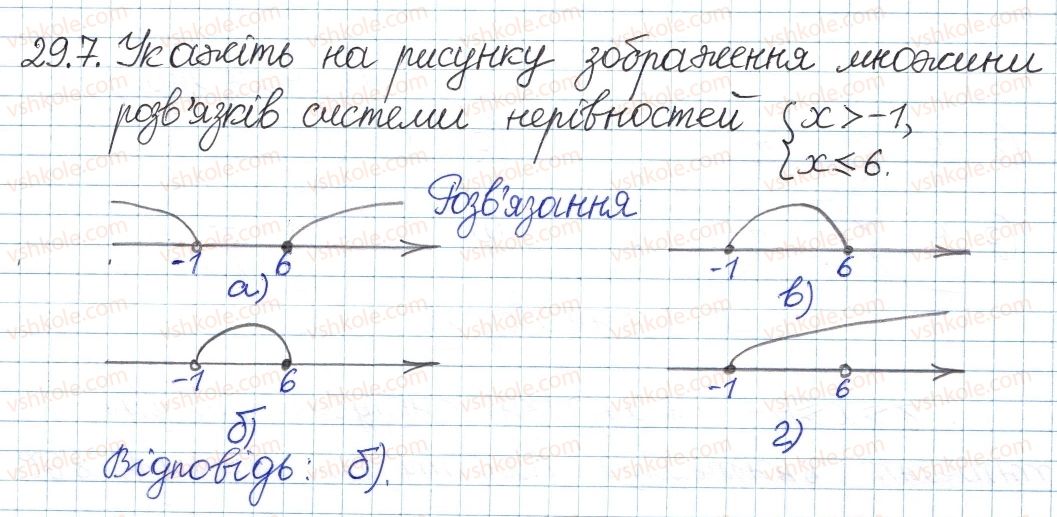 29.7. Укажіть на рисунку зображення множини
розв'язків системи нерівностей { x > -1,
{ x ≤ 6.
Розв'язання
-1 6
а)
-1 6
в)
-1 6
б)
-1 6
г)
Відповідь: б).